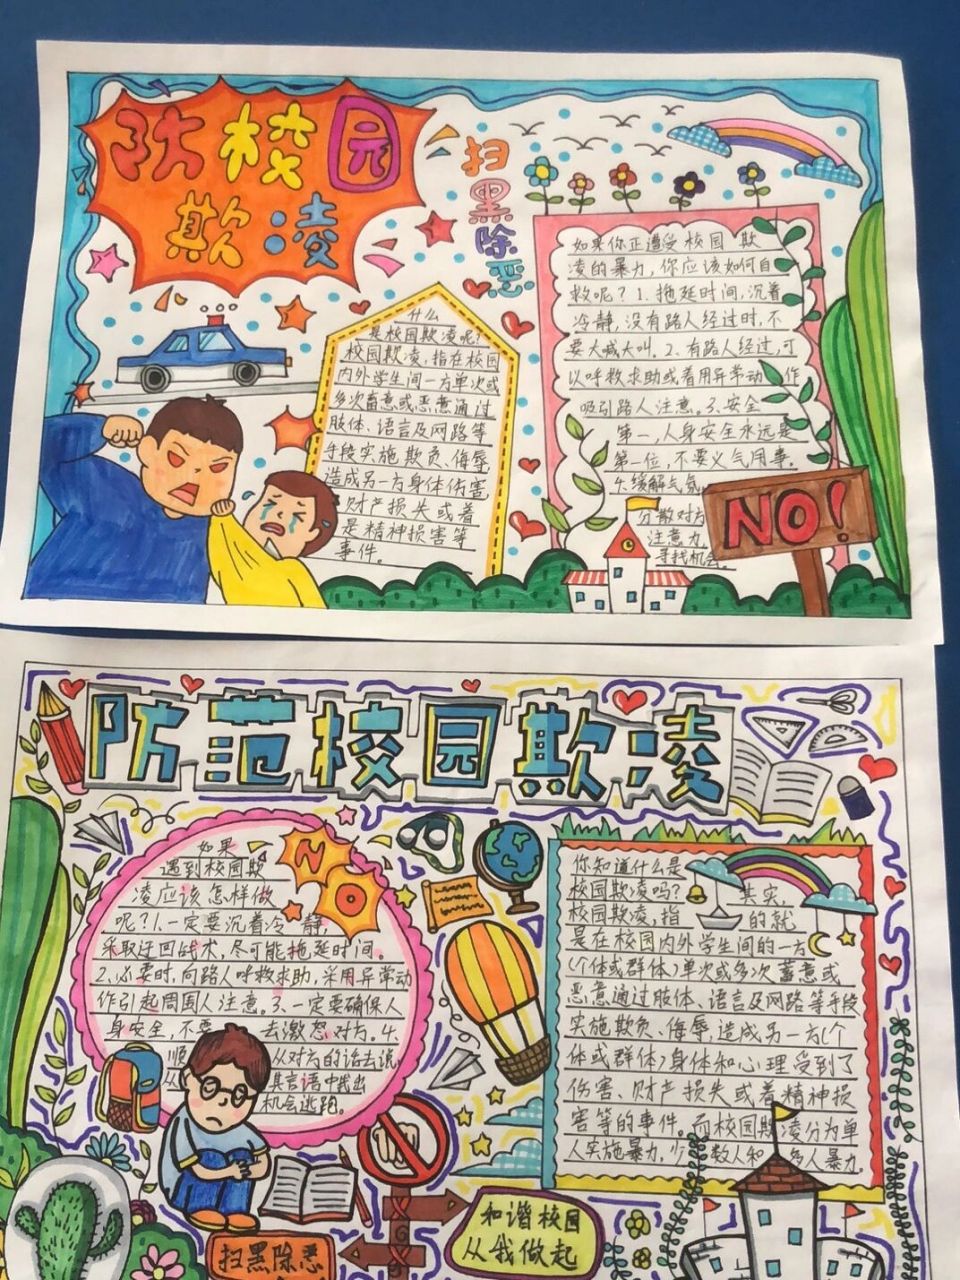 防校园
欺凌
扫黑除恶
什么
是校园欺凌呢?
校园欺凌、指在校园
内外学生间一方单次或
多次蓄意或恶意通过
肢体、语言及网路等
手段实施欺负、侮辱,
造成另一方身体伤害,
财产损失或着
是精神损害等
事件。
如果你正遭受校园欺
凌的暴力,你应该如何自
救呢?1.拖延时间,沉着
冷静,没有路人经过时,不
要大喊大叫。2.有路人经过,可
以呼救求助或着用异常动作
吸引路人注意。3.安全
第一,人身安全永远是
第一位,不要义气用事。
4.缓解气氛
分散对方
注意力
寻找机会。
NO!
防范校园欺凌
如果
遇到校园欺
凌应该怎样做
呢?1.一定要沉着冷静,
采取迂回战术,尽可能拖延时间。
2.必要时,向路人呼救求助,采用异常动
作引起周围人注意。3.一定要确保人
身安全,不要去激怒对方。4.
顺从对方的话去说
从其言语中找出
机会逃跑。
NO
你知道什么是
校园欺凌吗?其实,
校园欺凌,指的就
是在校园内外学生间的一方
(个体或群体)单次或多次蓄意或
恶意通过肢体、语言及网路等手段
实施欺负、侮辱,造成另一方(个
体或群体)身体和心理受到了
伤害、财产损失或着精神损
害等的事件。而校园欺凌分为单
人实施暴力,少数人和多人暴力。
扫黑除恶
和谐校园
从我做起